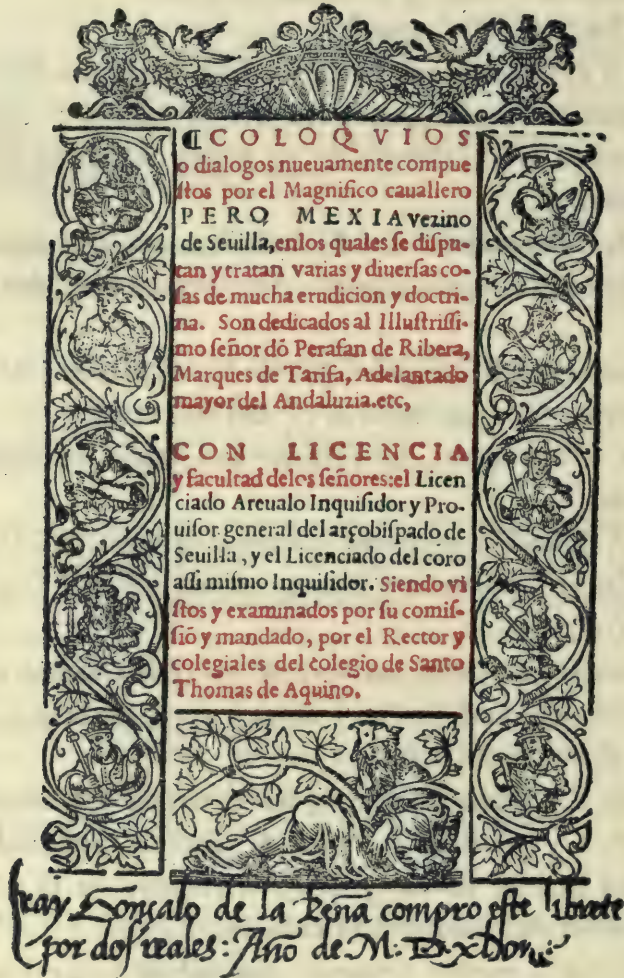 ¶COLOQVIOS
o dialogos nueuamente compue
ſtos por el Magnifico cauallero
PERO MEXIA vezino
de Seuilla, enlos quales ſe diſpu-
tan y tratan varias y diuerſas co-
ſas de mucha erudicion y doctri-
na. Son dedicados al Illuſtriſſi-
mo ſeñor dõ Perafan de Ribera,
Marques de Tarifa, Adelantado
mayor del Andaluzia.etc,
CON LICENCIA
y facultad delos ſeñores:el Licen
ciado Areualo Inquiſidor y Pro-
uiſor general del arçobiſpado de
Seuilla, y el Licenciado del coro
aſſi miſmo Inquiſidor. Siendo vi
ſtos y examinados por ſu comiſ-
ſiõ y mandado, por el Rector y
colegiales del colegio de Santo
Thomas de Aquino.
fray Gonçalo de la Peña compro eſte librete
por doſ reales: Año de M. D.